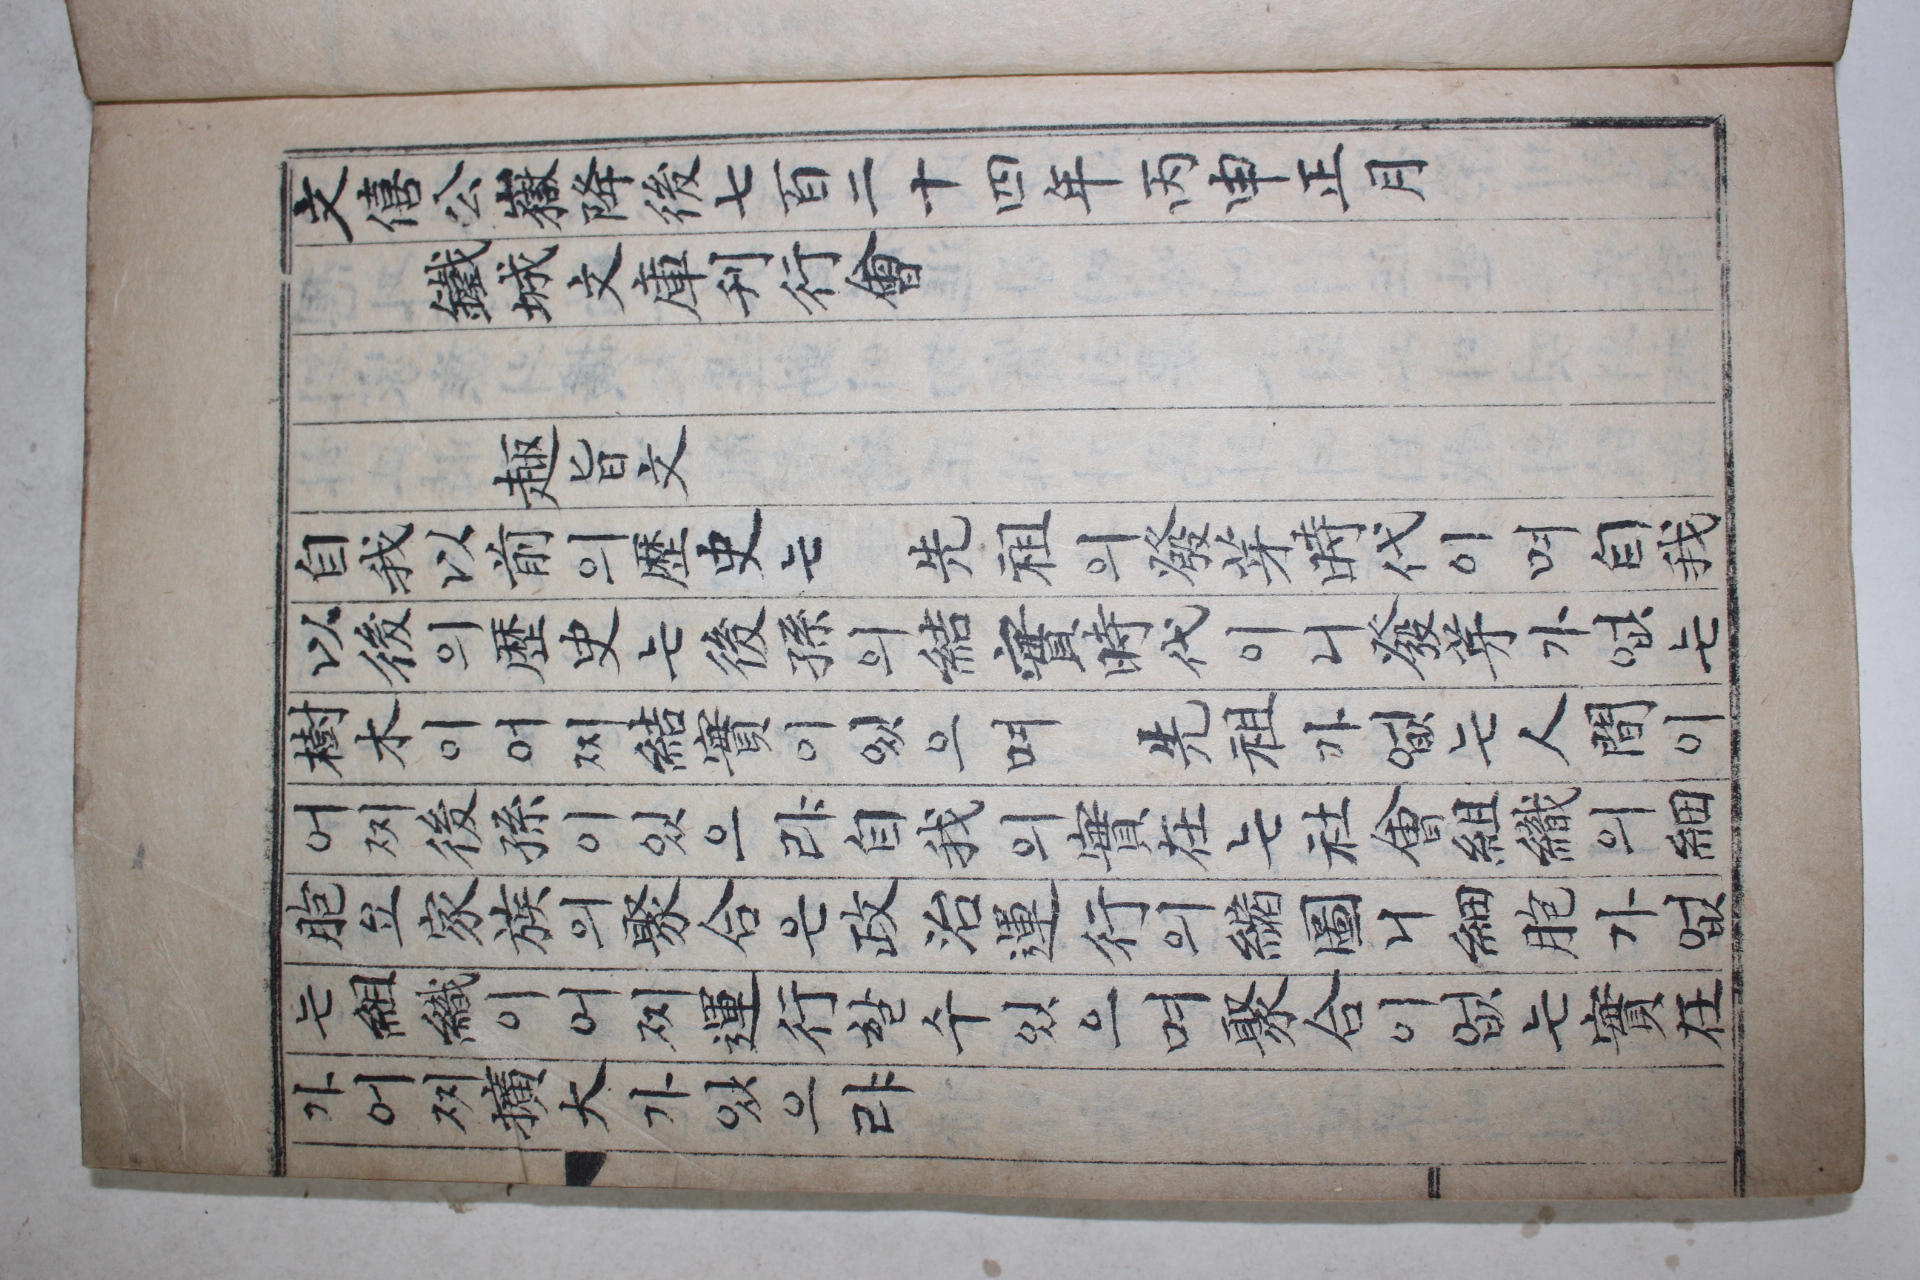 文僖公嶽降後七百二十四年丙申正月
鐵城文庫刊行會
趣旨文
自我以前의歷史는 先祖의發芽時代이며自我
以後의歷史는後孫의結實時代이니發芽가없는
樹木이어찌結實이있으며 先祖가없는人間이
어찌後孫이있으랴自我의實在는社會組織의細
胞요家族의聚合은政治運行의縮圖니細胞가없
는組織이어찌運行할수있으며聚合이없는實在
가어찌擴大가있으랴